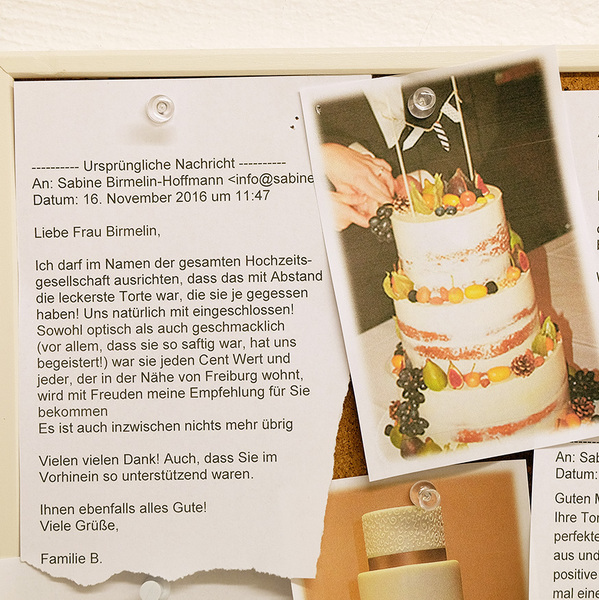 ---------- Ursprüngliche Nachricht ----------
An: Sabine Birmelin-Hoffmann <info@sabine
Datum: 16. November 2016 um 11:47
Liebe Frau Birmelin,
Ich darf im Namen der gesamten Hochzeits-
gesellschaft ausrichten, dass das mit Abstand
die leckerste Torte war, die sie je gegessen
haben! Uns natürlich mit eingeschlossen!
Sowohl optisch als auch geschmacklich
(vor allem, dass sie so saftig war, hat uns
begeistert!) war sie jeden Cent Wert und
jeder, der in der Nähe von Freiburg wohnt,
wird mit Freuden meine Empfehlung für Sie
bekommen
Es ist auch inzwischen nichts mehr übrig
Vielen vielen Dank! Auch, dass Sie im
Vorhinein so unterstützend waren.
Ihnen ebenfalls alles Gute!
Viele Grüße,
Familie B.
An: Sab
Datum:
Guten M
Ihre Tor
perfekte
aus und
positive
mal eine